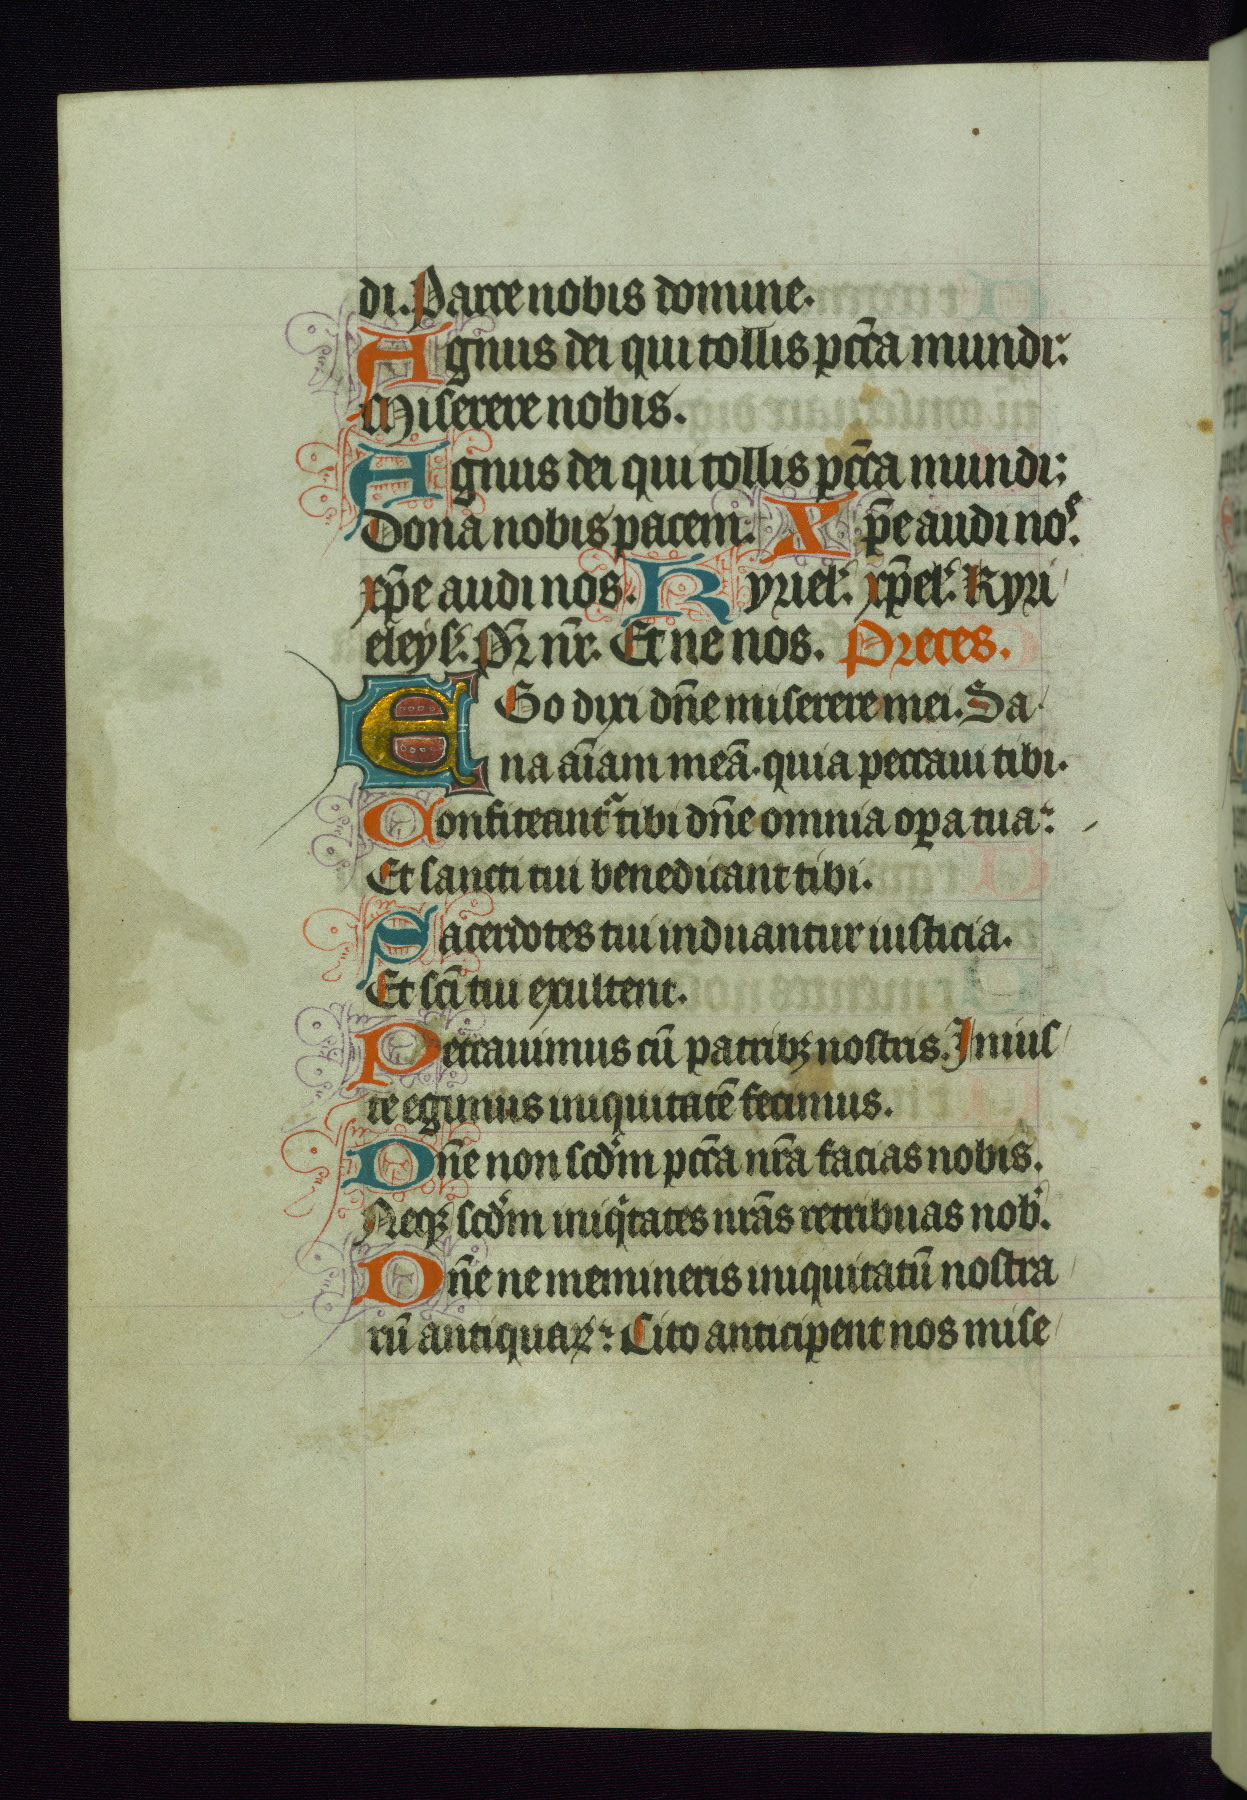 di. Parce nobis domine.
Agnus dei qui tollis pctā mundi:
Miserere nobis.
Agnus dei qui tollis pctā mundi:
Dona nobis pacem. Xp̄e audi nos.
xp̄e audi nos. Kyriel'. xp̄el'. kyri
eleys'. Pr̄ nr̄. Et ne nos. Preces.
EGo dixi dn̄e miserere mei. Sa
na aīam meā. quia peccaui tibi.
Confiteant᷑ tibi dn̄e omnia oꝑa tua:
Et sancti tui benedicant tibi.
Sacerdotes tui induantur iusticia.
Et scī tui exultent.
Peccauimus cū patribꝫ nostris. Iniuſ
te egimus iniquitatē fecimus.
Dn̄e non scd̄m pctā nrā facias nobis.
Neqꝫ scd̄m iniqͥtates nrās retribuas nob'.
Dn̄e ne memineris iniquitatū nostra
rū antiquaꝝ: Cito anticipent nos mise